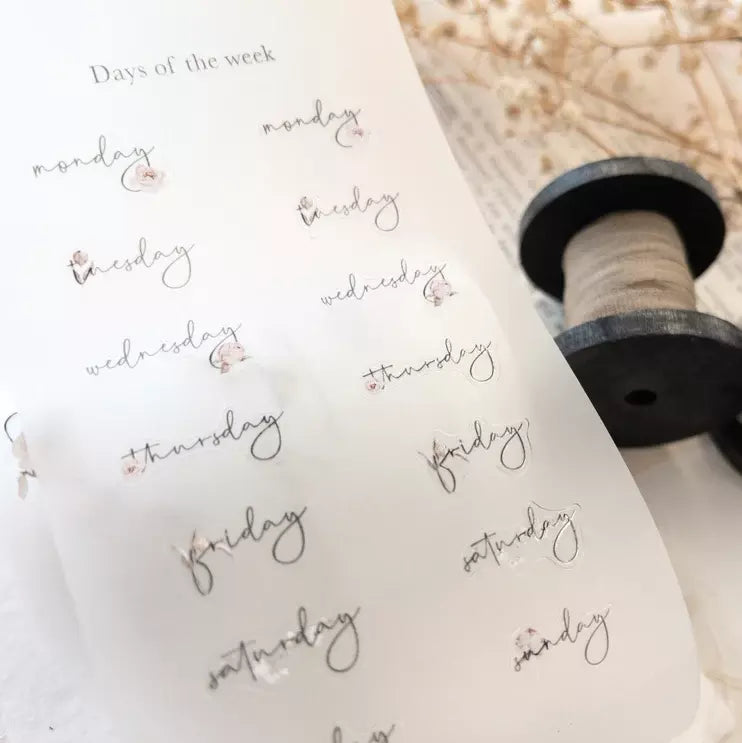 Days of the week
monday monday
tuesday tuesday
wednesday wednesday
thursday thursday
friday friday
saturday saturday
sunday